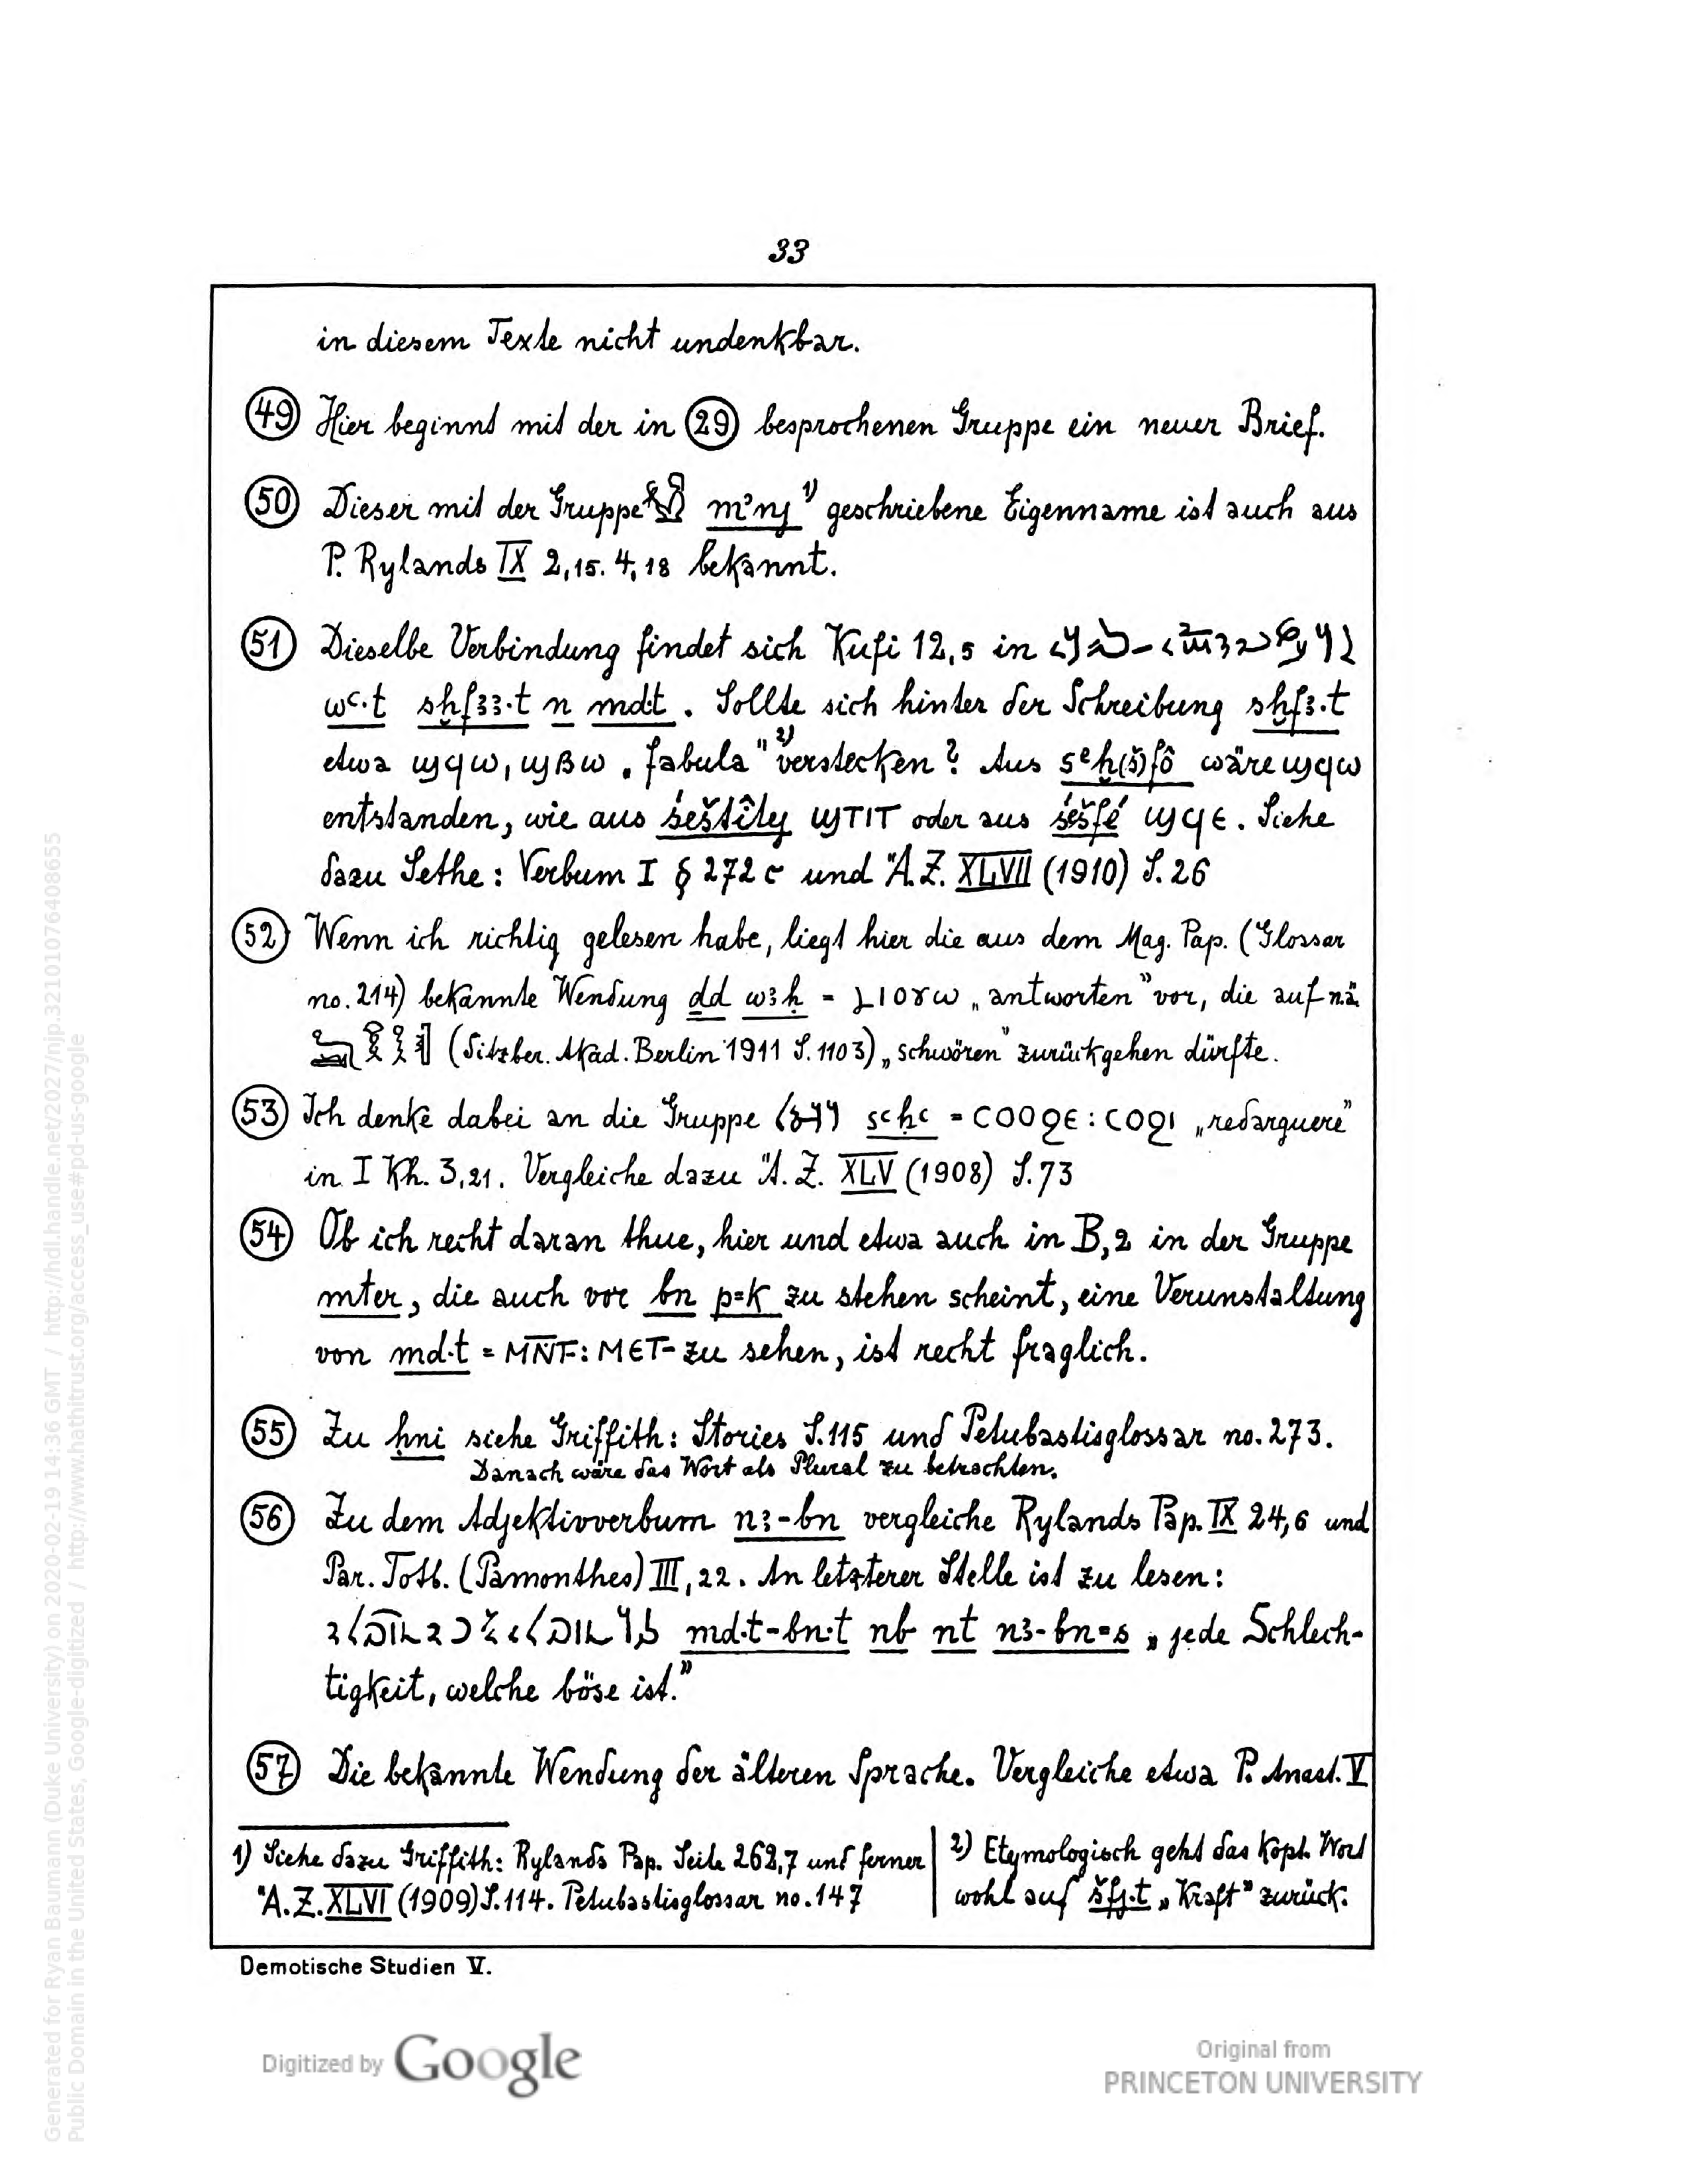 33
in diesem Texte nicht undenkbar.
(49) Hier beginnt mit der in (29) besprochenen Gruppe ein neuer Brief.
(50) Dieser mit der Gruppe m'nj 1) geschriebene Eigenname ist auch aus
P. Rylands IX 2,15. 4,18 bekannt.
(51) Dieselbe Verbindung findet sich Kufi 12,5 in
wꜥ.t sẖfꜣꜣ.t n md.t. Sollte sich hinter der Schreibung sẖfꜣ.t
etwa ϣϥω, ϣⲃω „fabula" 2) verstecken? Aus sᵉẖ(š)fô wäre ϣϥω
entstanden, wie aus śeštîtej ϣⲧⲓⲧ oder aus śešfé ϣϥⲉ. Siehe
dazu Sethe: Verbum I § 272 c und Ä.Z. XLVII (1910) S. 26
(52) Wenn ich richtig gelesen habe, liegt hier die aus dem Mag. Pap. (Glossar
no. 214) bekannte Wendung ḏd wꜣḥ = ϫⲓⲟⲩⲱ „antworten" vor, die auf nä.
(Sitzber. Akad. Berlin 1911 S. 1103) „schwören" zurückgehen dürfte.
(53) Ich denke dabei an die Gruppe sꜥḥꜥ = ⲥⲟⲟϩⲉ : ⲥⲟϩⲓ „redarguere"
in I Kh. 3,21. Vergleiche dazu Ä.Z. XLV (1908) S. 73
(54) Ob ich recht daran thue, hier und etwa auch in B,2 in der Gruppe
mter, die auch vor bn p=k zu stehen scheint, eine Verunstaltung
von md.t = ⲙⲛ̄ⲧ- : ⲙⲉⲧ- zu sehen, ist recht fraglich.
(55) Zu ḥni siehe Griffith: Stories S. 115 und Petubastisglossar no. 273.
Danach wäre das Wort als Plural zu betrachten.
(56) Zu dem Adjektivverbum nꜣ-bn vergleiche Rylands Pap. IX 24,6 und
Par. Totb. (Pamonthes) III, 22. An letzterer Stelle ist zu lesen:
md.t-bn.t nb nt nꜣ-bn=s „jede Schlech-
tigkeit, welche böse ist."
(57) Die bekannte Wendung der älteren Sprache. Vergleiche etwa P. Anast. V
1) Siehe dazu Griffith: Rylands Pap. Seite 262,7 und ferner
Ä.Z. XLVI (1909) S. 114. Petubastisglossar no. 147
2) Etymologisch geht das kopt. Wort
wohl auf šfj.t „Kraft" zurück.
Demotische Studien V.
Digitized by Google
Original from
PRINCETON UNIVERSITY
Generated for Ryan Baumann (Duke University) on 2020-02-19 14:36 GMT / http://hdl.handle.net/2027/njp.32101076408655
Public Domain in the United States, Google-digitized / http://www.hathitrust.org/access_use#pd-us-google